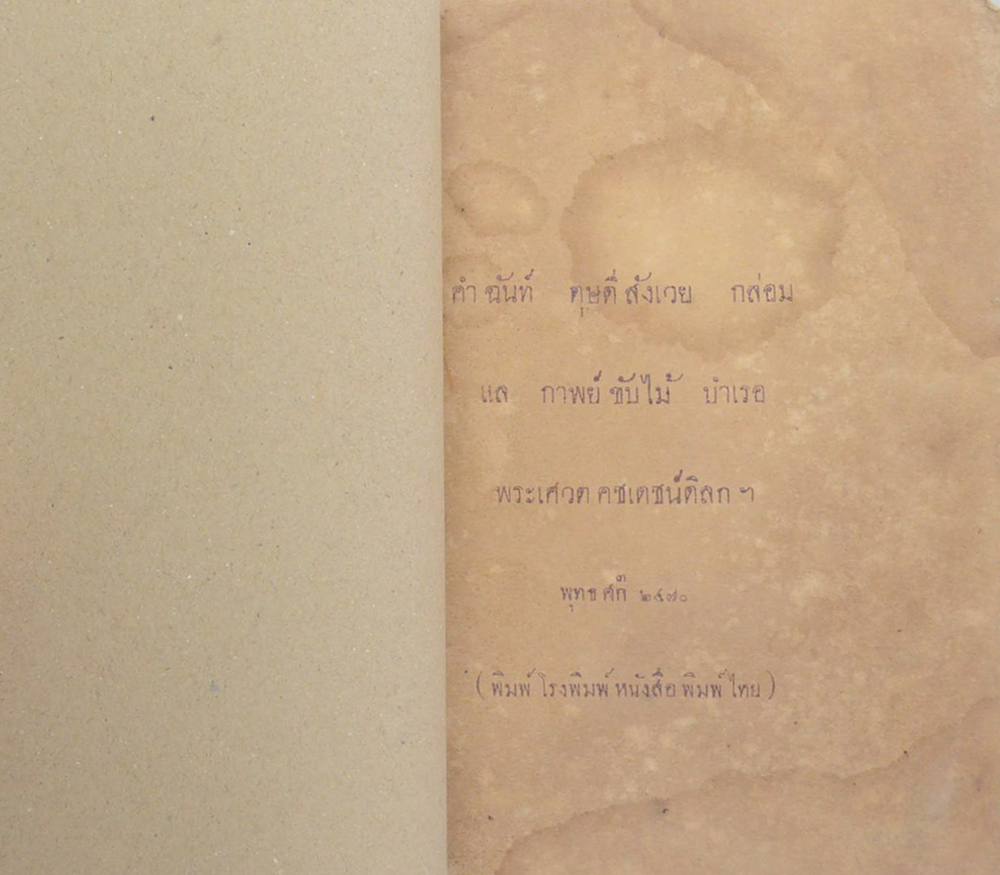 คำ ฉันท์ ดุษดี สังเวย กล่อม
แล กาพย์ ขับไม้ บำเรอ
พระเศวต คชเดชน์ดิลก ฯ
พุทธ ศก๊ ๒๔๗๐
( พิมพ์ โรงพิมพ์ หนังสือ พิมพ์ ไทย )